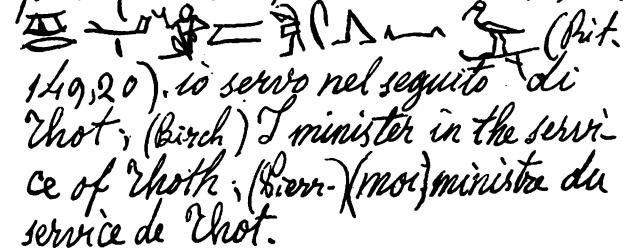 (Rit.
149,20). io servo nel seguito di
Thot; (Birch) I minister in the servi-
ce of Thoth; (Pierr-) (moi) ministre du
service de Thot.